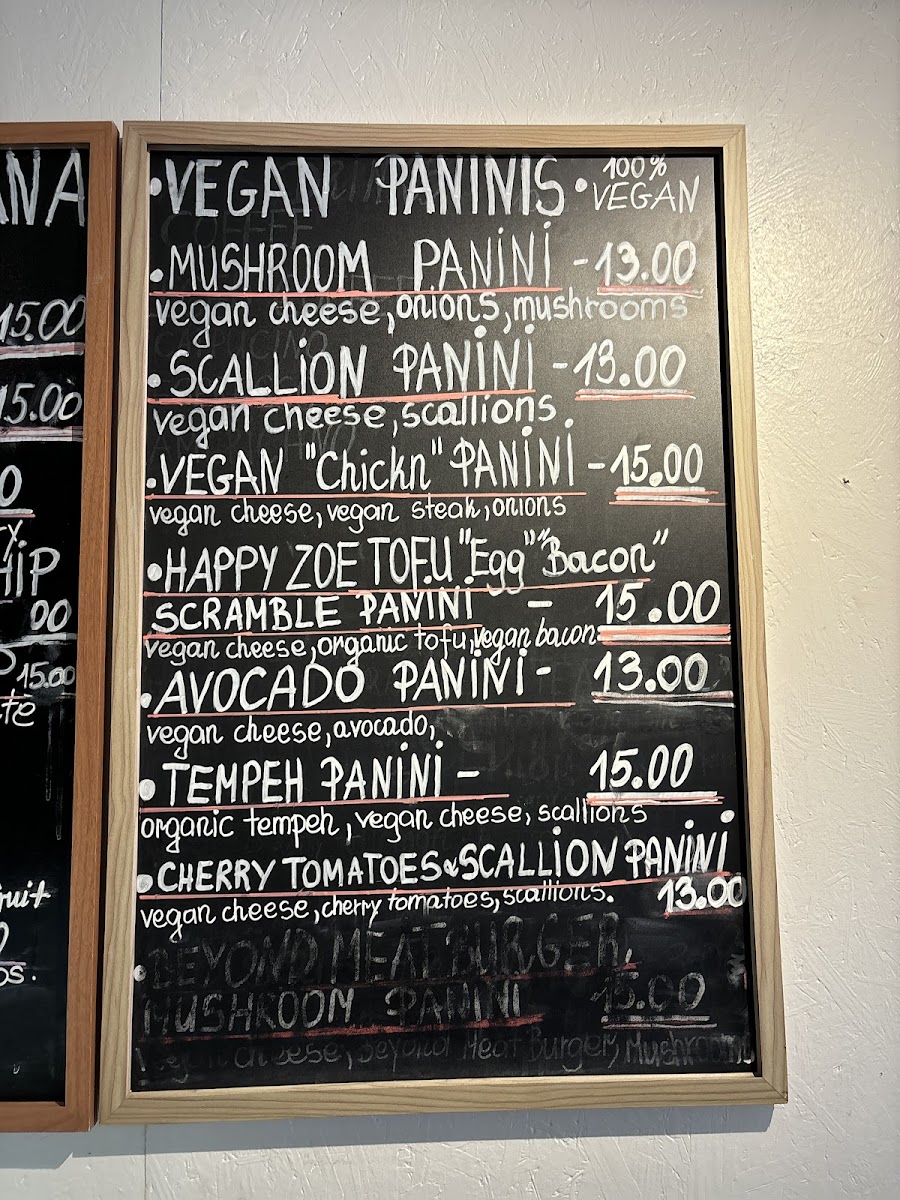 ANA
15.00
15.00
HIP
00
15.00
•VEGAN PANINIS• 100%
VEGAN
•MUSHROOM PANINI -13.00
vegan cheese, onions, mushrooms
•SCALLION PANINI -13.00
vegan cheese, scallions
•VEGAN "Chickn" PANINI -15.00
vegan cheese, vegan steak, onions
•HAPPY ZOE TOFU "Egg" "Bacon"
SCRAMBLE PANINI - 15.00
vegan cheese, organic tofu, vegan bacon
•AVOCADO PANINI- 13.00
vegan cheese, avocado,
•TEMPEH PANINI- 15.00
organic tempeh, vegan cheese, scallions
•CHERRY TOMATOES & SCALLION PANINI
vegan cheese, cherry tomatoes, scallions. 13.00
•BEYOND MEAT BURGER,
MUSHROOM PANINI 15.00
vegan cheese, Beyond Meat Burger, Mushrooms